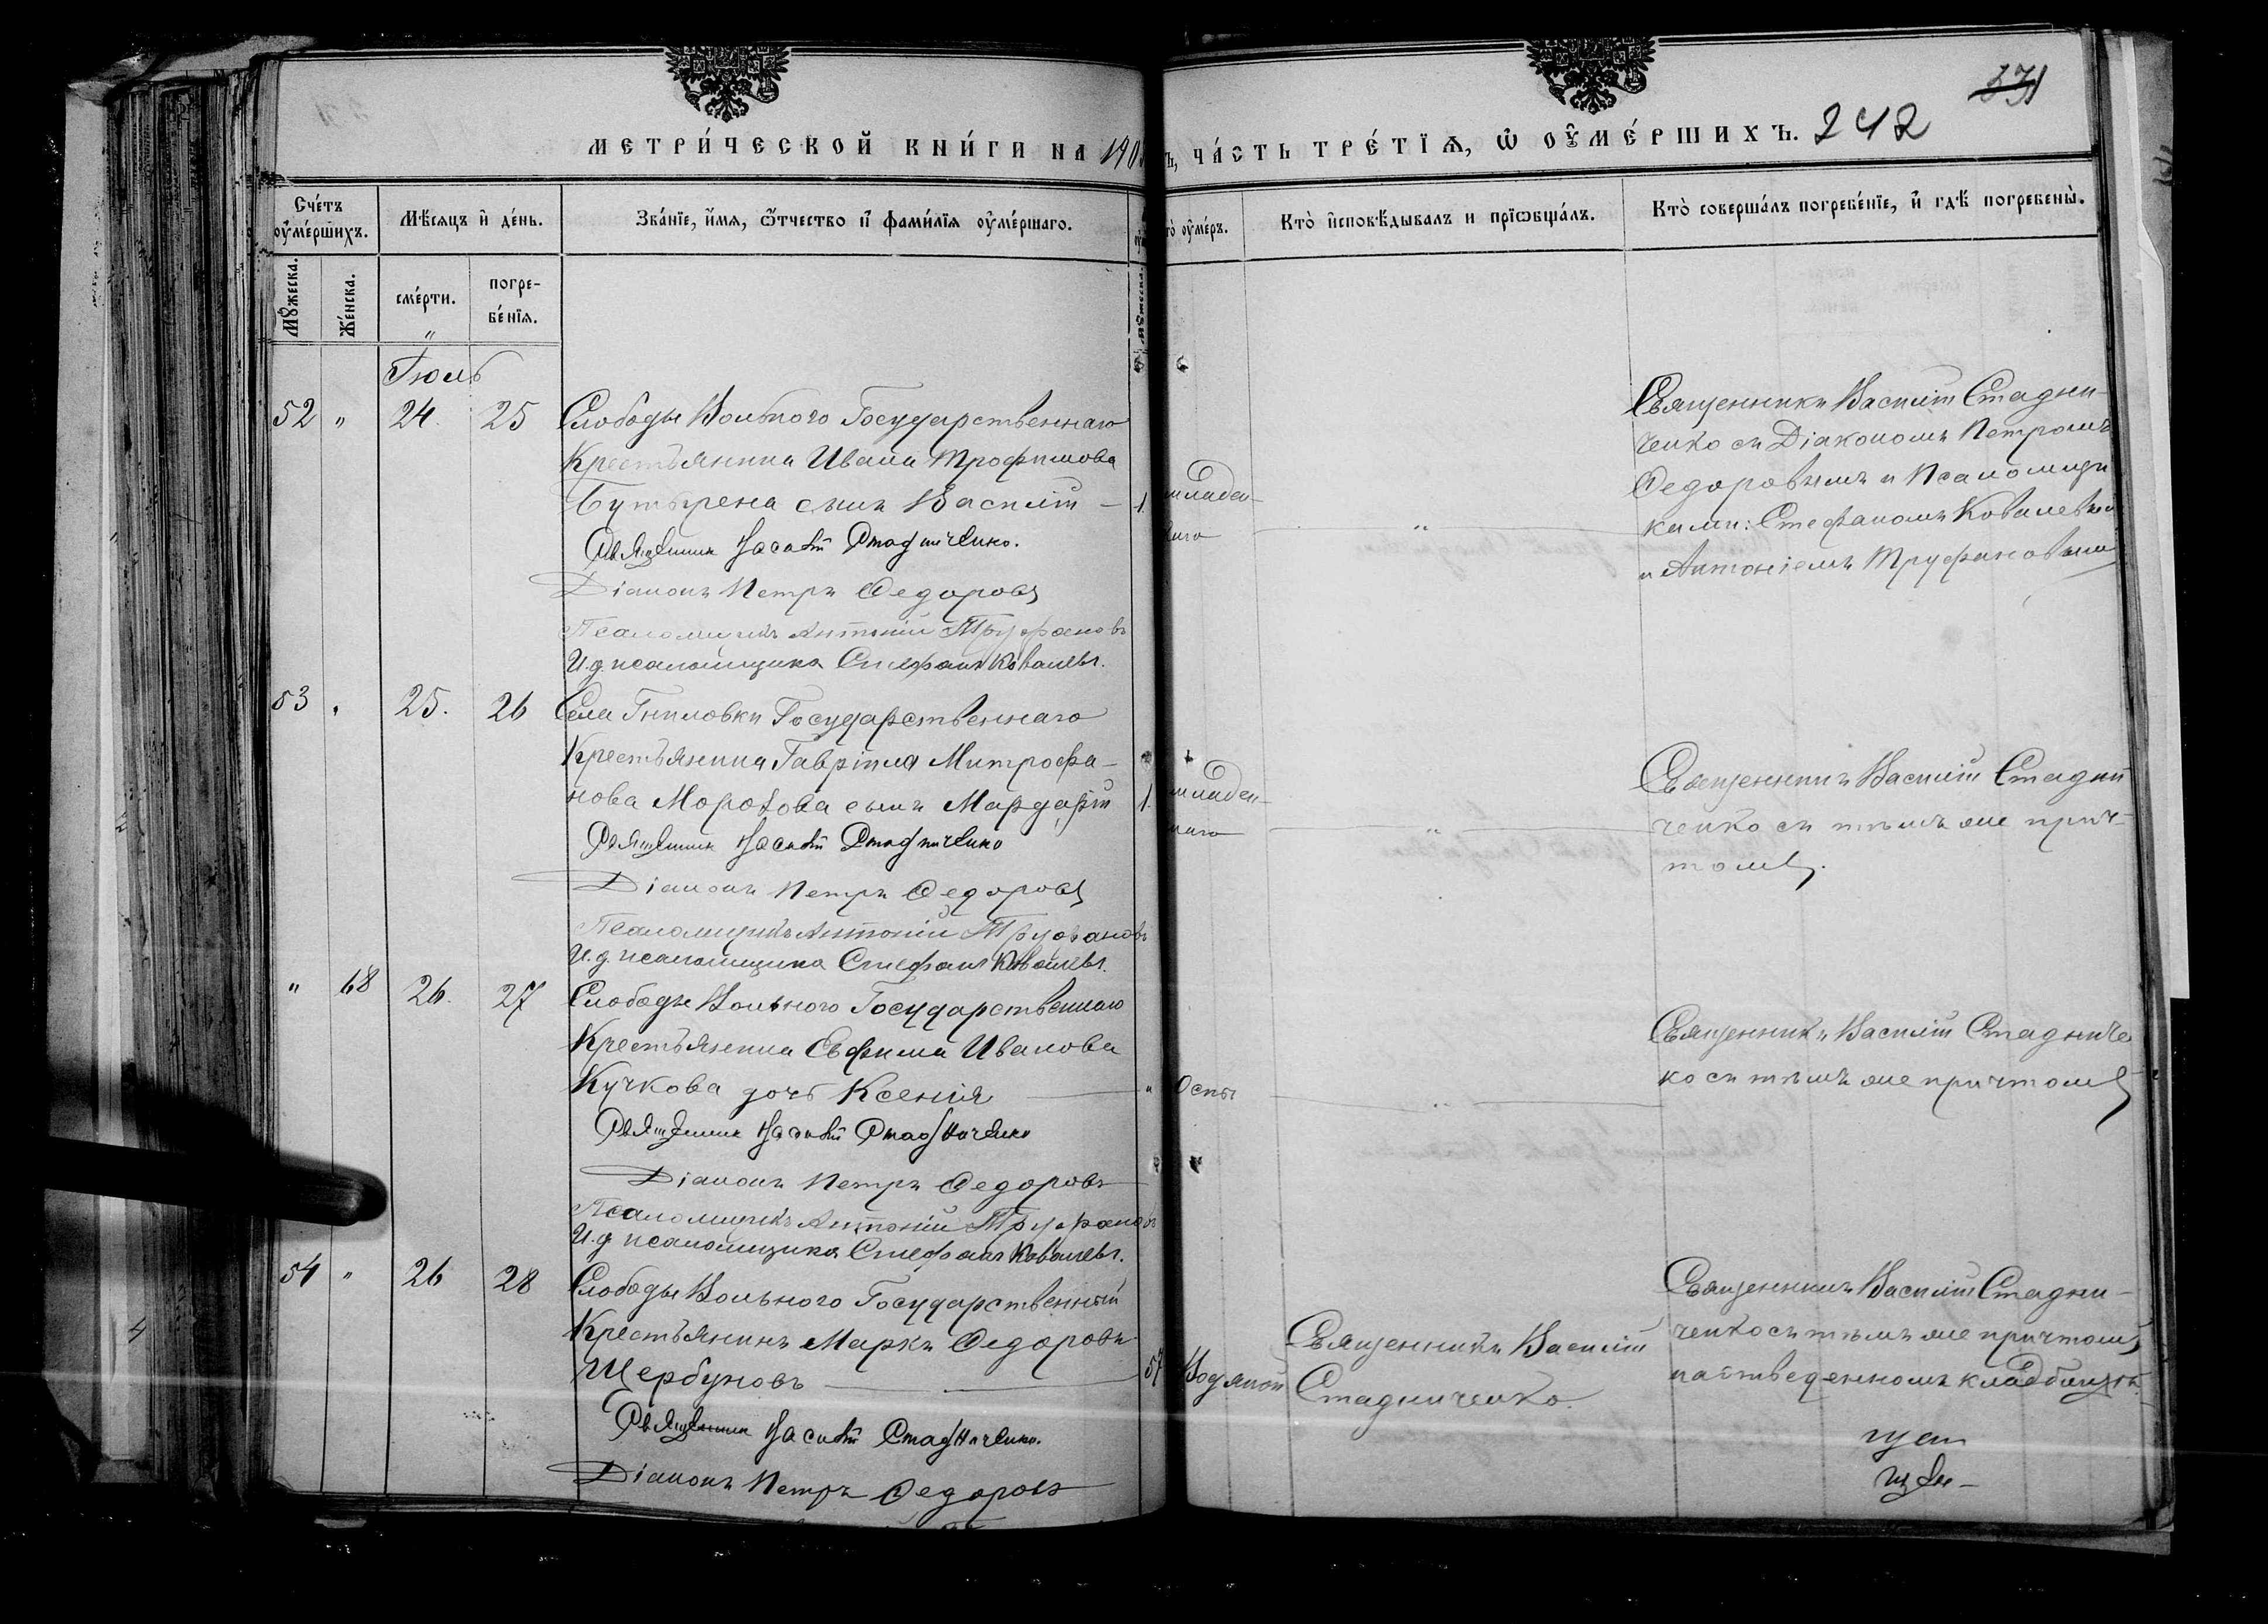 МЕТРИ́ЧЕСКОЙ КНИ́ГИ НА 190
ЧА́СТЬ ТРЕ́ТЇѦ, Ѡ ОУ҆МЕ́РШИХЪ. 242
271
Сче́тъ оу҆ме́ршихъ.
Мѣ́сяцъ и҆ де́нь.
Зва́нїе, и҆́мя, ѻ҆́тчество и҆ фами́лїя оу҆ме́ршаго.
оу҆ме́ръ.
Кто̀ и҆сповѣ́дывалъ и прїѡбща́лъ.
Кто̀ соверша́лъ погребе́нїе, и҆ гдѣ̀ погребены̀.
Мꙋ́жеска.
Же́нска.
сме́рти.
погре-
бе́нїя.
Іюль
52 " 24. 25 Слободы Вольного Государственнаго
Крестьянина Ивана Трофимова
сынъ Василій — 1. младен-
Священникъ Василій Стадниченко.
Діаконъ Петръ Федоровъ
Псаломщикъ Антоній Труфановъ
И.д. псаломщика Стефанъ Ковалевъ.
Священникъ Василій Стадни-
ченко съ Діакономъ Петромъ
Федоровымъ и Псаломщи
ками: Стефаномъ Ковалевы
и Антоніемъ Труфановым
53 " 25. 26 Села Гниловки Государственнаго
Крестьянина Гавріила Митрофа-
нова Морозова сынъ Мардарій 1. младен-
Священникъ Василій Стадниченко
Діаконъ Петръ Федоровъ
Псаломщикъ Антоній Труфановъ
И.д. псаломщика Стефанъ Ковалевъ.
Священникъ Василій Стадни
ченко съ тѣмъ же прич-
томъ.
" 68 26. 27 Слободы Вольного Государственнаго
Крестьянина Евфима Иванова
Кучкова дочь Ксенія — " Оспы
Священникъ Василій Стадниченко
Діаконъ Петръ Федоровъ
Псаломщикъ Антоній Труфановъ
И.д. псаломщика Стефанъ Ковалевъ.
Священникъ Василій Стадниче
ко съ тѣмъ же причтомъ
54 " 26 28 Слободы Вольного Государственный
Крестьянинъ Маркъ Федоровъ
Щербуновъ — 57 Водяной
Священникъ Василій Стадниченко.
Діаконъ Петръ Федоровъ
Священникъ Василій
Стадниченко.
Священникъ Василій Стадни-
ченко съ тѣмъ же причтомъ
на отведенномъ кладбищѣ